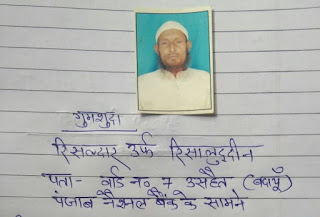 गुमशुदा
रिसालदार उर्फ रिसालुद्दीन
पता- वार्ड न० 7 उसहैत (बदायूँ)
पंजाब नैशनल बैंक के सामने